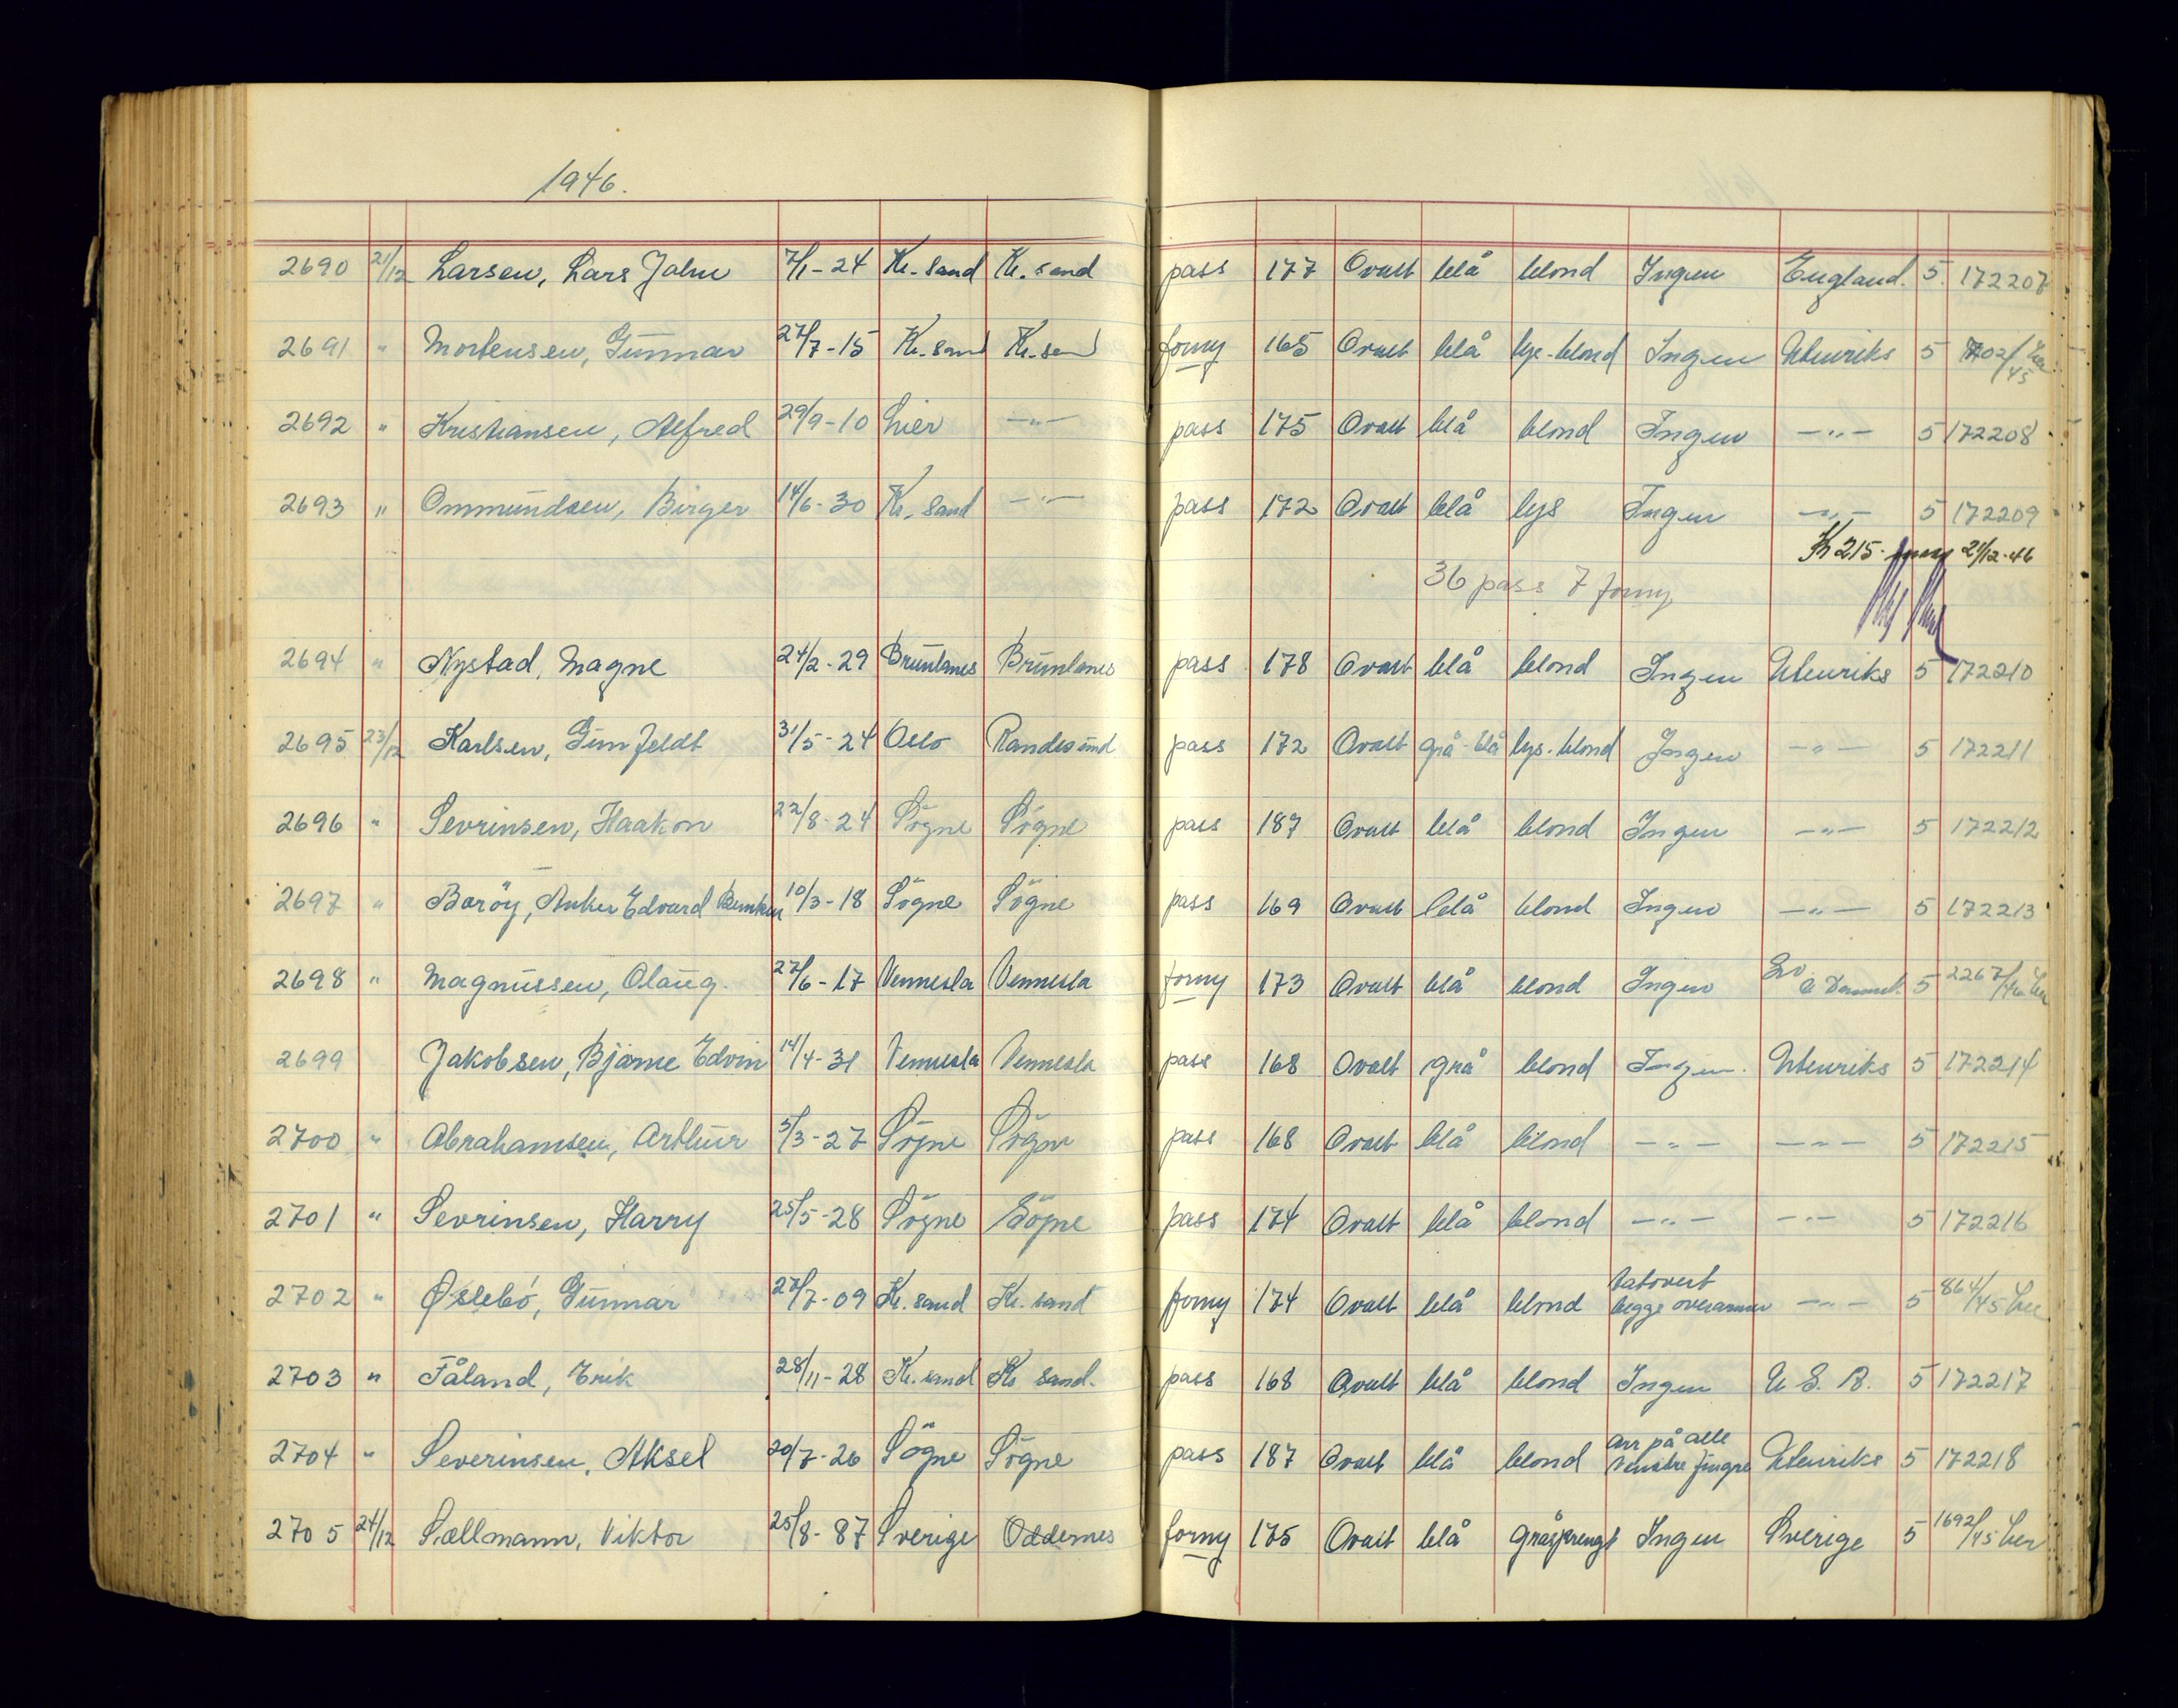 1946.
2690 21/12 Larsen, Lars John 7/1-24 Kr.sand Kr.sand pass 177 Ovalt blå blond Ingen England. 5 172207
2691 " Mortensen, Gunnar 27/7-15 Kr.sand Kr.sand forny 165 Ovalt blå lys-blond Ingen Utenriks 5
2692 " Kristiansen, Alfred 29/9-10 Lier —"— pass 175 Ovalt blå blond Ingen —"— 5 172208
2693 " Ommundsen, Birger 14/6-30 Kr.sand —"— pass 172 Ovalt blå lys Ingen —"— 5 172209
Kr 215.- 21/12-46
36 pass 7 forny
2694 " Nystad, Magne 24/2-29 Brunlanes Brunlanes pass 178 Ovalt blå blond Ingen Utenriks 5 172210
2695 23/12 Karlsen, Gunfeldt 31/5-24 Oslo Randesund pass 172 Ovalt grå-blå lys-blond Ingen —"— 5 172211
2696 " Sevrinsen, Haakon 22/8-24 Søgne Søgne pass 187 Ovalt blå blond Ingen —"— 5 172212
2697 " Borøy, Anker Edvard 10/3-18 Søgne Søgne pass 169 Ovalt blå blond Ingen —"— 5 172213
2698 " Magnussen, Olaug. 27/6-17 Vennesla Vennesla forny 173 Ovalt blå blond Ingen 5 2267/46
2699 Jakobsen, Bjarne Edvin 14/4-31 Vennesla Vennesla pass 168 Ovalt grå blond Ingen. Utenriks 5 172214
2700 " Abrahamsen, Arthur 5/3-27 Søgne Søgne pass 168 Ovalt blå blond —"— —"— 5 172215
2701 " Sevrinsen, Harry 25/5-28 Søgne Søgne pass 174 Ovalt blå blond —"— —"— 5 172216
2702 " Øslebø, Gunnar 27/7-09 Kr.sand Kr.sand forny 174 Ovalt blå blond tatovert begge overarmer —"— 5 864/45 her
2703 " Fåland, Erik 28/11-28 Kr.sand Kr sand. pass 168 Ovalt blå blond Ingen U.S.A. 5 172217
2704 " Severinsen, Aksel 20/7-26 Søgne Søgne pass 187 Ovalt blå blond arr på alle venstre fingre Utenriks 5 172218
2705 24/12 Sællmann, Viktor 25/8-87 Sverige Oddernes forny 175 Ovalt blå gråsprengt Ingen Sverige 5 1692/45 her